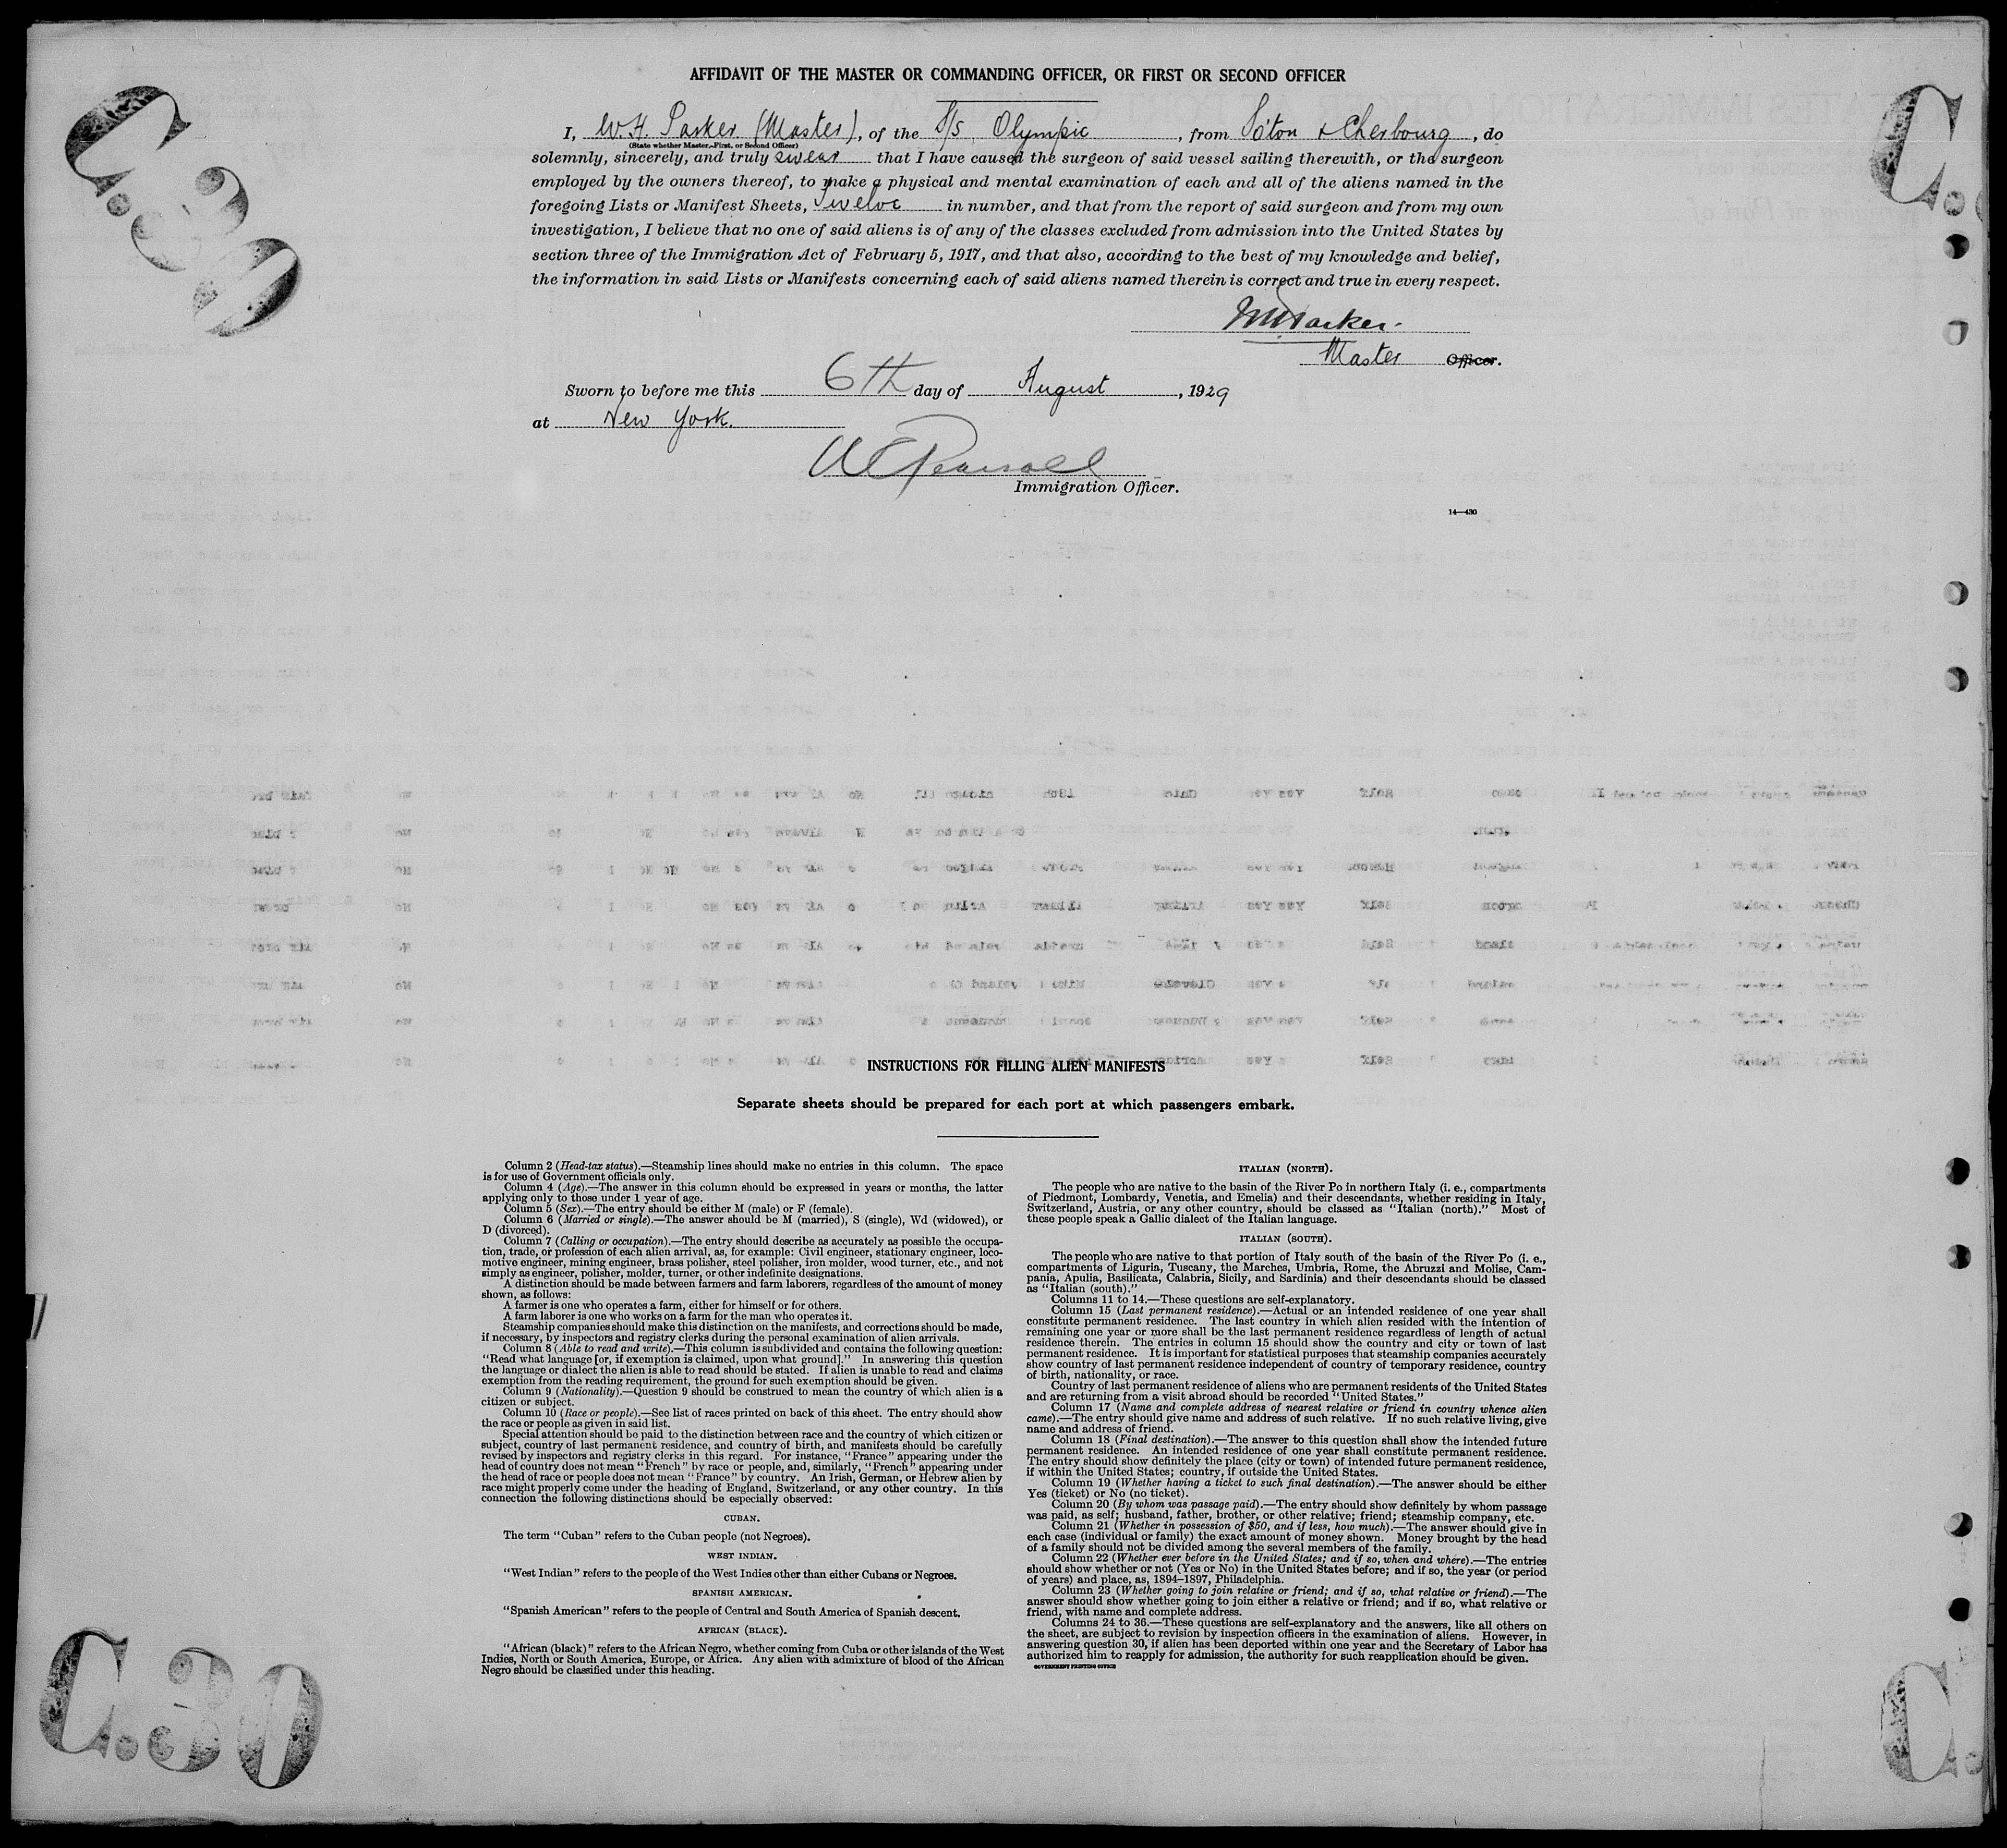 AFFIDAVIT OF THE MASTER OR COMMANDING OFFICER, OR FIRST OR SECOND OFFICER
I, W. H. Parker (Master), of the S/S Olympic, from So'ton & Cherbourg, do
(State whether Master, First, or Second Officer)
solemnly, sincerely, and truly swear that I have caused the surgeon of said vessel sailing therewith, or the surgeon
employed by the owners thereof, to make a physical and mental examination of each and all of the aliens named in the
foregoing Lists or Manifest Sheets, Twelve in number, and that from the report of said surgeon and from my own
investigation, I believe that no one of said aliens is of any of the classes excluded from admission into the United States by
section three of the Immigration Act of February 5, 1917, and that also, according to the best of my knowledge and belief,
the information in said Lists or Manifests concerning each of said aliens named therein is correct and true in every respect.
WHParker.
Master Officer.
Sworn to before me this 6th day of August, 1929
at New York.
Immigration Officer.
14—430
C.30
C.
INSTRUCTIONS FOR FILLING ALIEN MANIFESTS
Separate sheets should be prepared for each port at which passengers embark.
Column 2 (Head-tax status).—Steamship lines should make no entries in this column. The space
is for use of Government officials only.
Column 4 (Age).—The answer in this column should be expressed in years or months, the latter
applying only to those under 1 year of age.
Column 5 (Sex).—The entry should be either M (male) or F (female).
Column 6 (Married or single).—The answer should be M (married), S (single), Wd (widowed), or
D (divorced).
Column 7 (Calling or occupation).—The entry should describe as accurately as possible the occupa-
tion, trade, or profession of each alien arrival, as, for example: Civil engineer, stationary engineer, loco-
motive engineer, mining engineer, brass polisher, steel polisher, iron molder, wood turner, etc., and not
simply as engineer, polisher, molder, turner, or other indefinite designations.
A distinction should be made between farmers and farm laborers, regardless of the amount of money
shown, as follows:
A farmer is one who operates a farm, either for himself or for others.
A farm laborer is one who works on a farm for the man who operates it.
Steamship companies should make this distinction on the manifests, and corrections should be made,
if necessary, by inspectors and registry clerks during the personal examination of alien arrivals.
Column 8 (Able to read and write).—This column is subdivided and contains the following question:
"Read what language [or, if exemption is claimed, upon what ground]." In answering this question
the language or dialect the alien is able to read should be stated. If alien is unable to read and claims
exemption from the reading requirement, the ground for such exemption should be given.
Column 9 (Nationality).—Question 9 should be construed to mean the country of which alien is a
citizen or subject.
Column 10 (Race or people).—See list of races printed on back of this sheet. The entry should show
the race or people as given in said list.
Special attention should be paid to the distinction between race and the country of which citizen or
subject, country of last permanent residence, and country of birth, and manifests should be carefully
revised by inspectors and registry clerks in this regard. For instance, "France" appearing under the
head of country does not mean "French" by race or people, and, similarly, "French" appearing under
the head of race or people does not mean "France" by country. An Irish, German, or Hebrew alien by
race might properly come under the heading of England, Switzerland, or any other country. In this
connection the following distinctions should be especially observed:
CUBAN.
The term "Cuban" refers to the Cuban people (not Negroes).
WEST INDIAN.
"West Indian" refers to the people of the West Indies other than either Cubans or Negroes.
SPANISH AMERICAN.
"Spanish American" refers to the people of Central and South America of Spanish descent.
AFRICAN (BLACK).
"African (black)" refers to the African Negro, whether coming from Cuba or other islands of the West
Indies, North or South America, Europe, or Africa. Any alien with admixture of blood of the African
Negro should be classified under this heading.
ITALIAN (NORTH).
The people who are native to the basin of the River Po in northern Italy (i. e., compartments
of Piedmont, Lombardy, Venetia, and Emelia) and their descendants, whether residing in Italy,
Switzerland, Austria, or any other country, should be classed as "Italian (north)." Most of
these people speak a Gallic dialect of the Italian language.
ITALIAN (SOUTH).
The people who are native to that portion of Italy south of the basin of the River Po (i. e.,
compartments of Liguria, Tuscany, the Marches, Umbria, Rome, the Abruzzi and Molise, Cam-
pania, Apulia, Basilicata, Calabria, Sicily, and Sardinia) and their descendants should be classed
as "Italian (south)."
Columns 11 to 14.—These questions are self-explanatory.
Column 15 (Last permanent residence).—Actual or an intended residence of one year shall
constitute permanent residence. The last country in which alien resided with the intention of
remaining one year or more shall be the last permanent residence regardless of length of actual
residence therein. The entries in column 15 should show the country and city or town of last
permanent residence. It is important for statistical purposes that steamship companies accurately
show country of last permanent residence independent of country of temporary residence, country
of birth, nationality, or race.
Country of last permanent residence of aliens who are permanent residents of the United States
and are returning from a visit abroad should be recorded "United States."
Column 17 (Name and complete address of nearest relative or friend in country whence alien
came).—The entry should give name and address of such relative. If no such relative living, give
name and address of friend.
Column 18 (Final destination).—The answer to this question shall show the intended future
permanent residence. An intended residence of one year shall constitute permanent residence.
The entry should show definitely the place (city or town) of intended future permanent residence,
if within the United States; country, if outside the United States.
Column 19 (Whether having a ticket to such final destination).—The answer should be either
Yes (ticket) or No (no ticket).
Column 20 (By whom was passage paid).—The entry should show definitely by whom passage
was paid, as self; husband, father, brother, or other relative; friend; steamship company, etc.
Column 21 (Whether in possession of $50, and if less, how much).—The answer should give in
each case (individual or family) the exact amount of money shown. Money brought by the head
of a family should not be divided among the several members of the family.
Column 22 (Whether ever before in the United States; and if so, when and where).—The entries
should show whether or not (Yes or No) in the United States before; and if so, the year (or period
of years) and place, as, 1894–1897, Philadelphia.
Column 23 (Whether going to join relative or friend; and if so, what relative or friend).—The
answer should show whether going to join either a relative or friend; and if so, what relative or
friend, with name and complete address.
Columns 24 to 36.—These questions are self-explanatory and the answers, like all others on
the sheet, are subject to revision by inspection officers in the examination of aliens. However, in
answering question 30, if alien has been deported within one year and the Secretary of Labor has
authorized him to reapply for admission, the authority for such reapplication should be given.
GOVERNMENT PRINTING OFFICE
C.30
C.